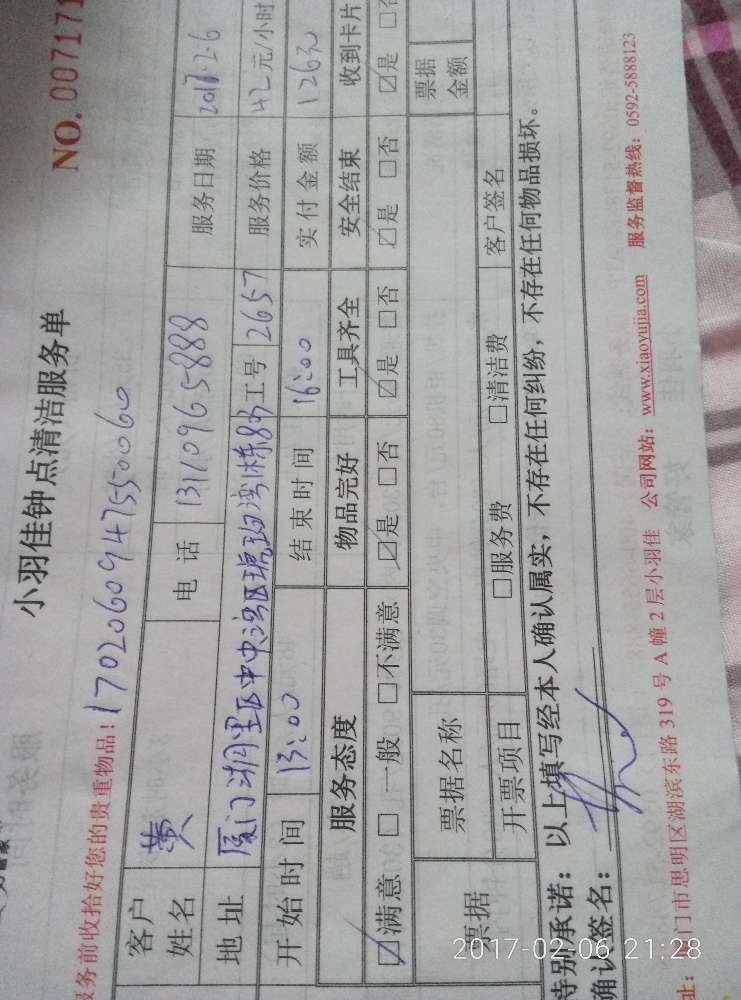 NO. 007171
小羽佳钟点清洁服务单
服务前收拾好您的贵重物品! 1702060947550060
客户姓名 黄 电话 13110965888 服务日期 2017.2.6
地址 厦门湖里区中央湾区琥珀湾1栋803 工号 2657 服务价格 42元/小时
开始时间 13:00 结束时间 16:00 实付金额 126元
服务态度 物品完好 工具齐全 安全结束 收到卡片
☑满意 □一般 □不满意 ☑是 □否 ☑是 □否 ☑是 □否 ☑是 □否
票据 票据名称 票据金额
开票项目 □服务费 □清洁费 客户签名
特别承诺: 以上填写经本人确认属实, 不存在任何纠纷, 不存在任何物品损坏.
确认签名:
址: 厦门市思明区湖滨东路 319 号 A 幢 2 层小羽佳 公司网站: www.xiaoyujia.com 服务监督热线: 0592-5888123
2017-02-06 21:28